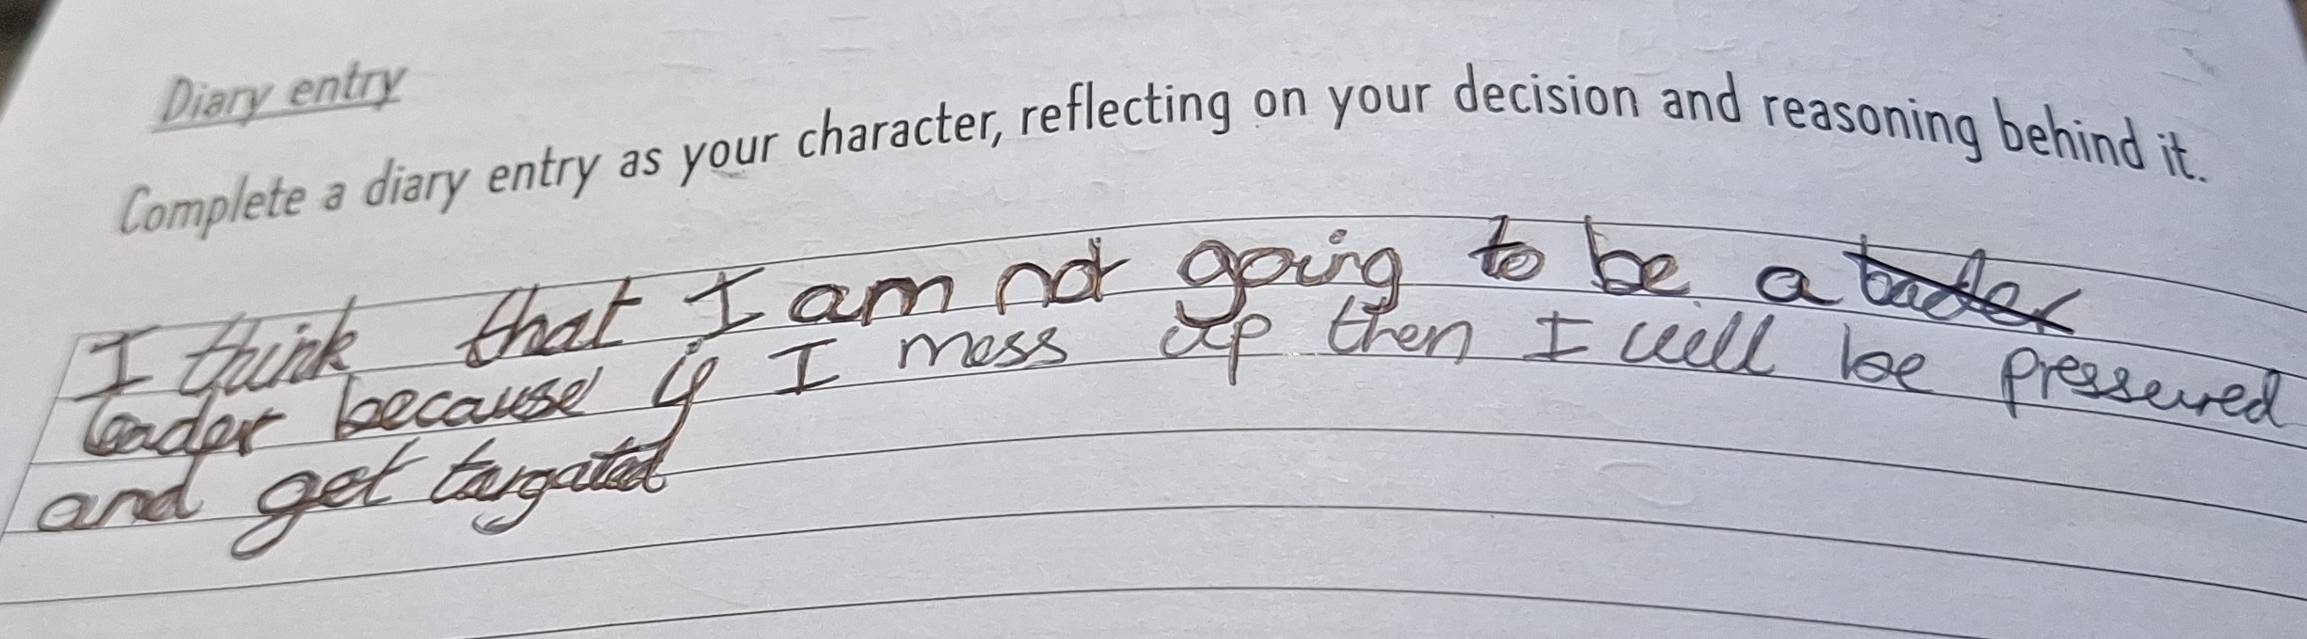 Diary entry
Complete a diary entry as your character, reflecting on your decision and reasoning behind it.
I think that I am not going to be a
leader because if I mess up then I will be presseured
and get targated